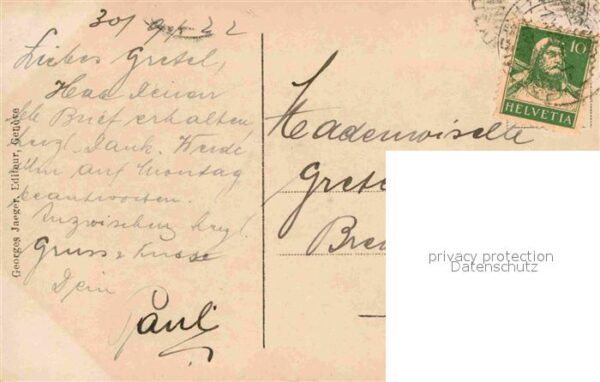 30/ 22
Liebes Gretel,
Habe Deinen
lb Brief erhalten
herzl. Dank. Werde
Ihn auf Montag
beantworten.
Inzwischen herzl.
Gruss & Kuss
Dein
Paul
Georges Jaeger, Editeur, Genève
10
HELVETIA
Mademoiselle
Grete
Bre
privacy protection
Datenschutz